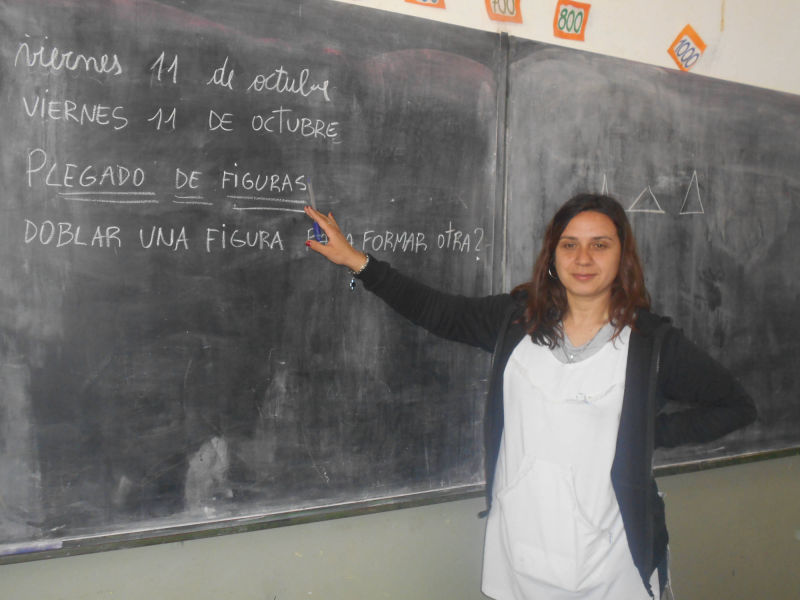 700
800
1000
viernes 11 de octubre
VIERNES 11 DE OCTUBRE
PLEGADO DE FIGURAS
DOBLAR UNA FIGURA FORMAR OTRA?